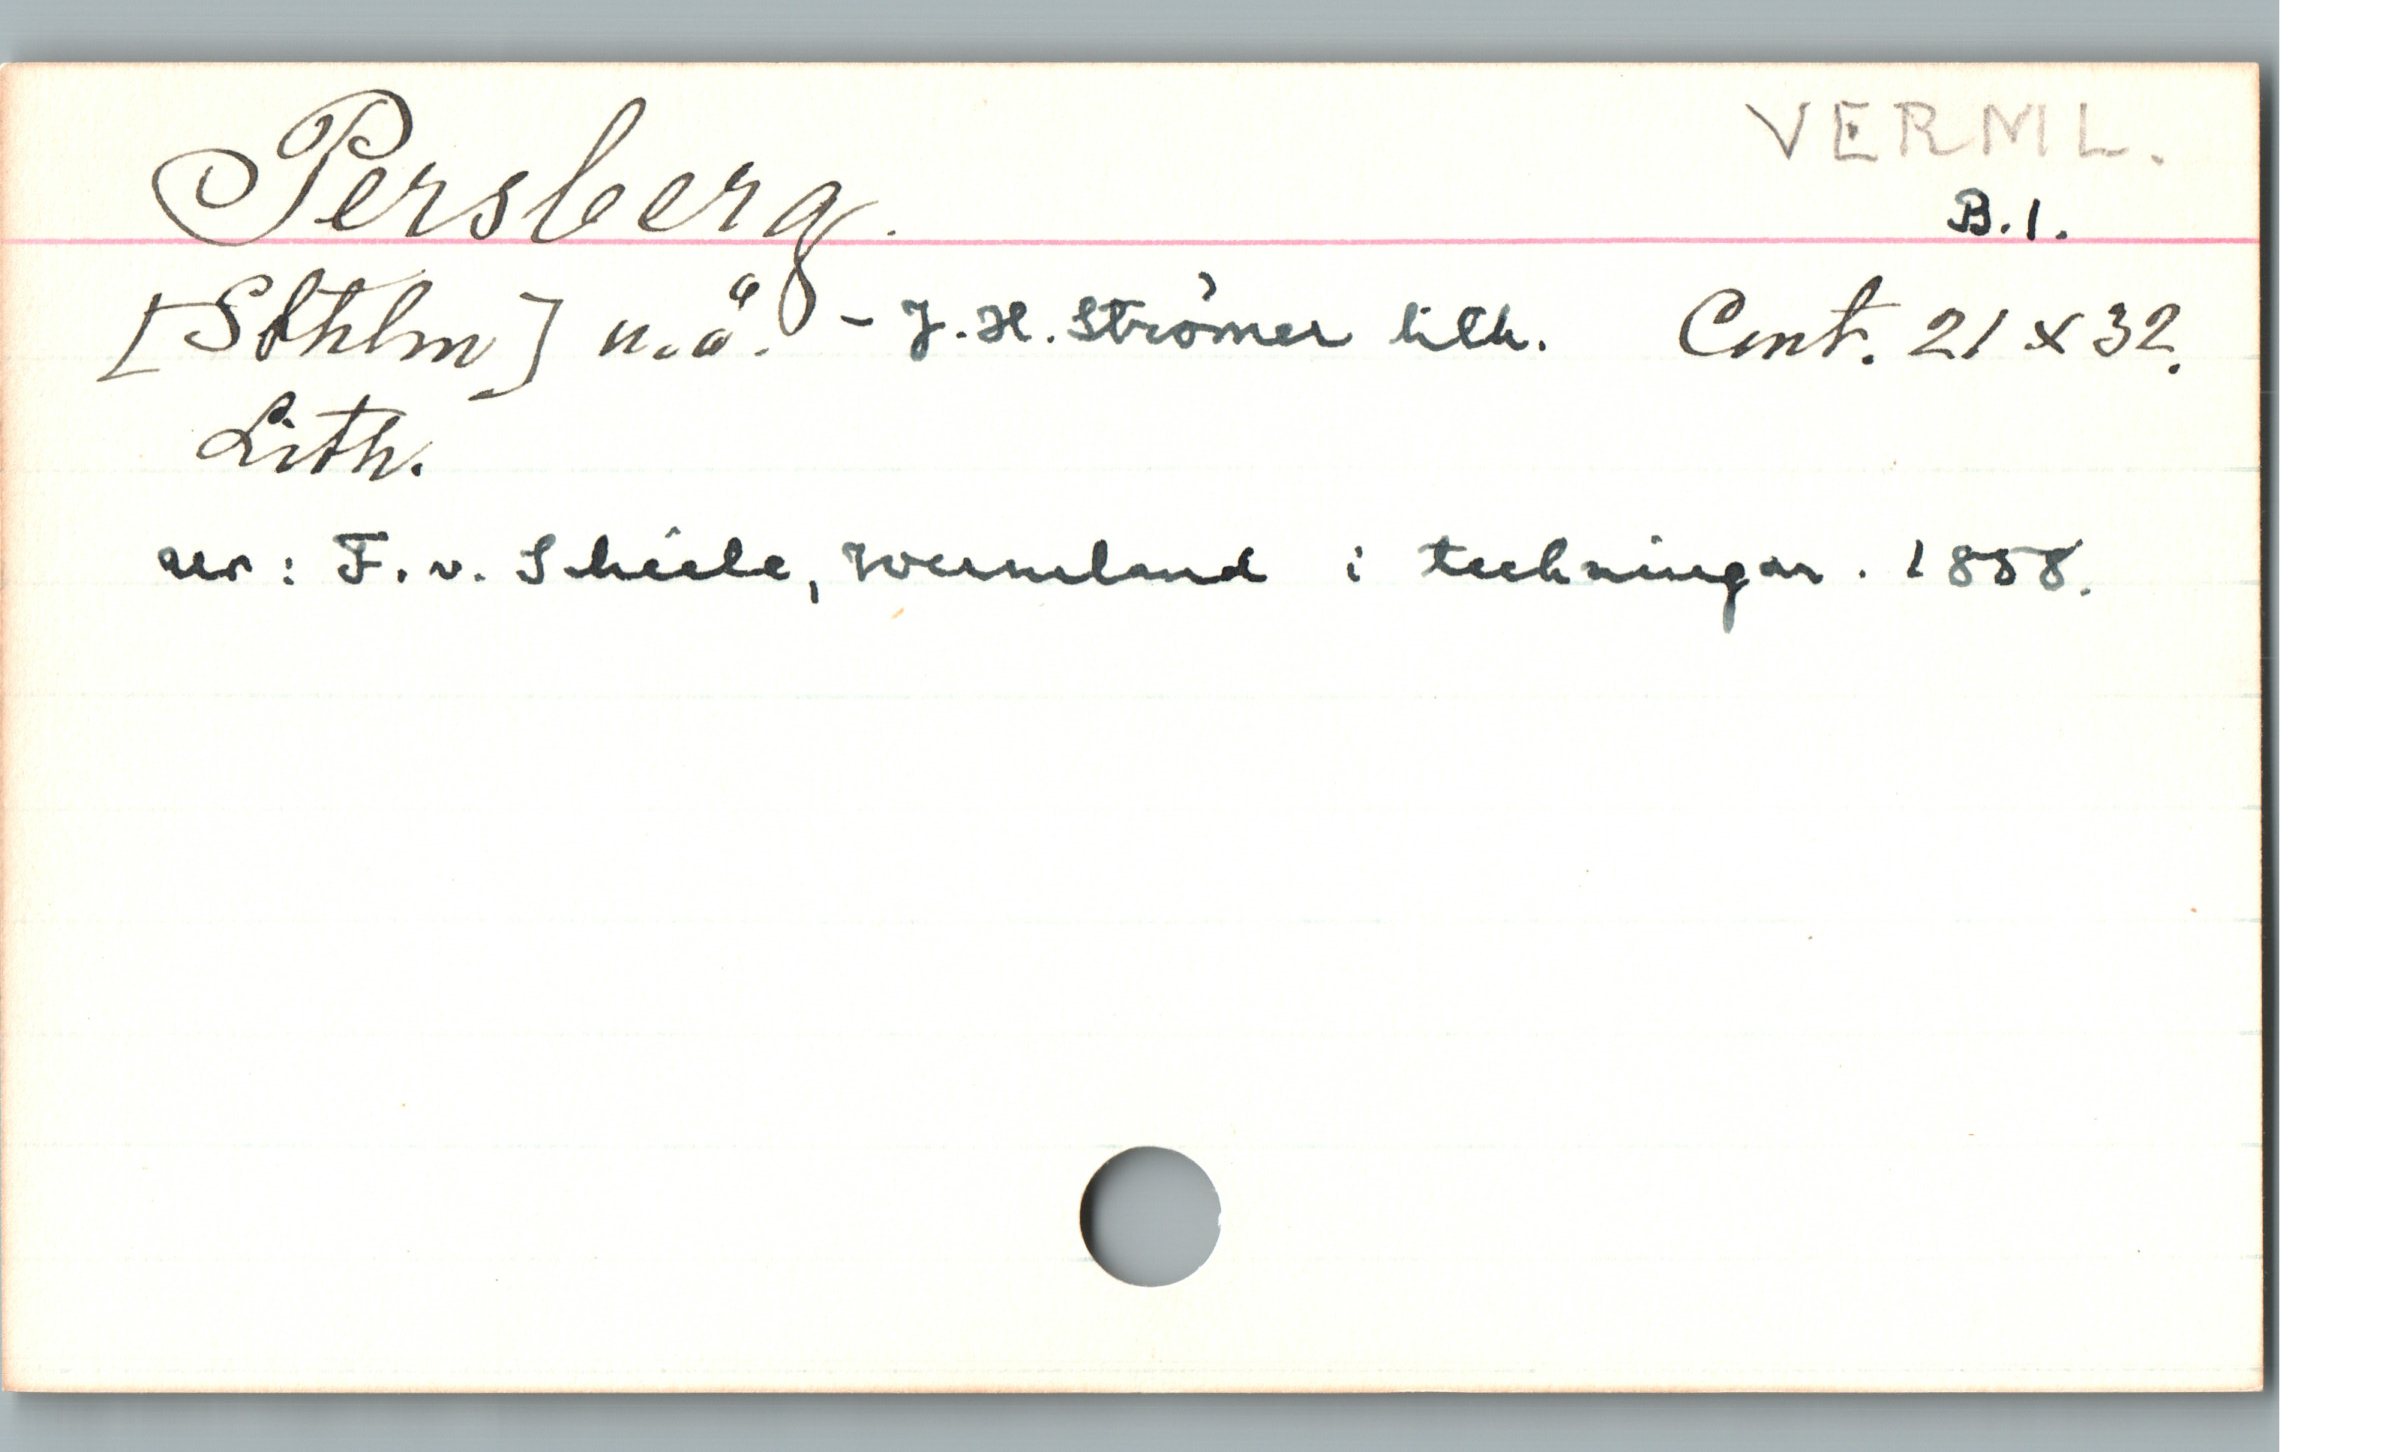 VERML.
Persberg.
B.1.
[Sthlm] u.å. - J. H. Strömer lith. Cent. 21 x 32.
Lith.
ur: F. v. Scheele, Wermland i teckningar. 1858.